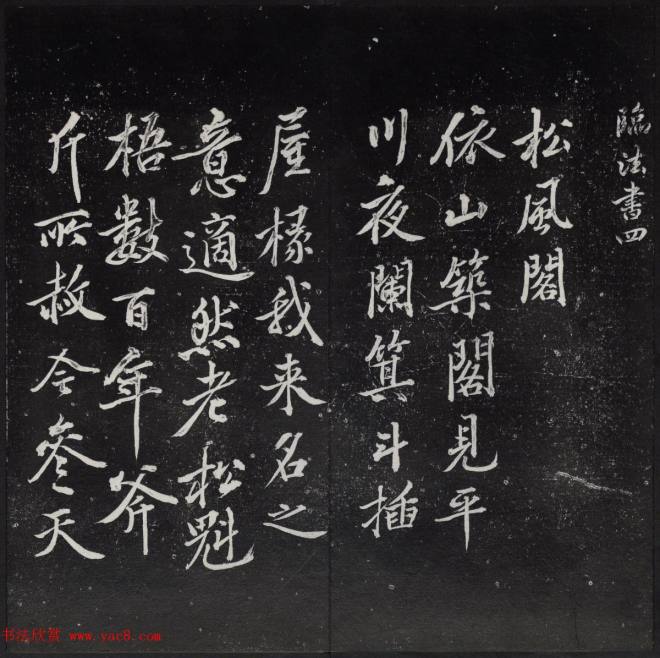 臨法書四
松風閣
依山築閣見平
川夜闌箕斗插
屋椽我来名之
意適然老松魁
梧數百年斧
斤所赦今參天
书法欣赏 www.yac8.com